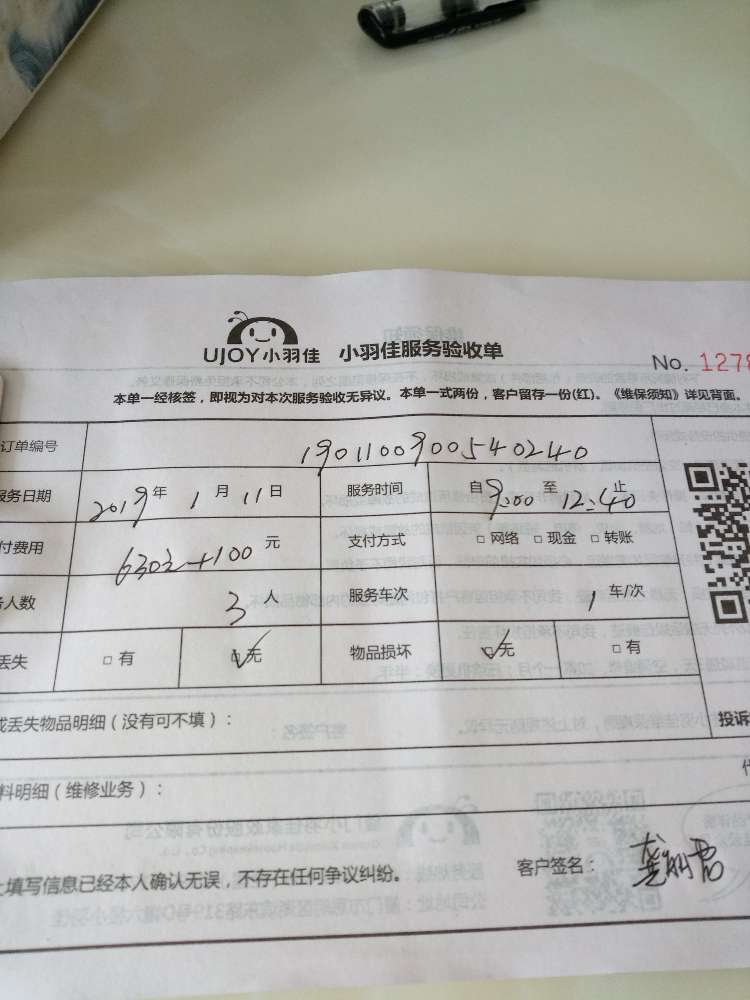 UJOY小羽佳 小羽佳服务验收单
No. 1278
本单一经核签，即视为对本次服务验收无异议。本单一式两份，客户留存一份(红)。《维保须知》详见背面。
订单编号 1901100900540240
服务日期 2019年 1月 11日 服务时间 自9:00至12:40止
付费用 630元+100元 支付方式 □网络 □现金 □转账
人数 3人 服务车次 1车/次
丢失 □有 □无 物品损坏 □无 □有
或丢失物品明细（没有可不填）：
投诉
料明细（维修业务）：
上填写信息已经本人确认无误，不存在任何争议纠纷。
客户签名：